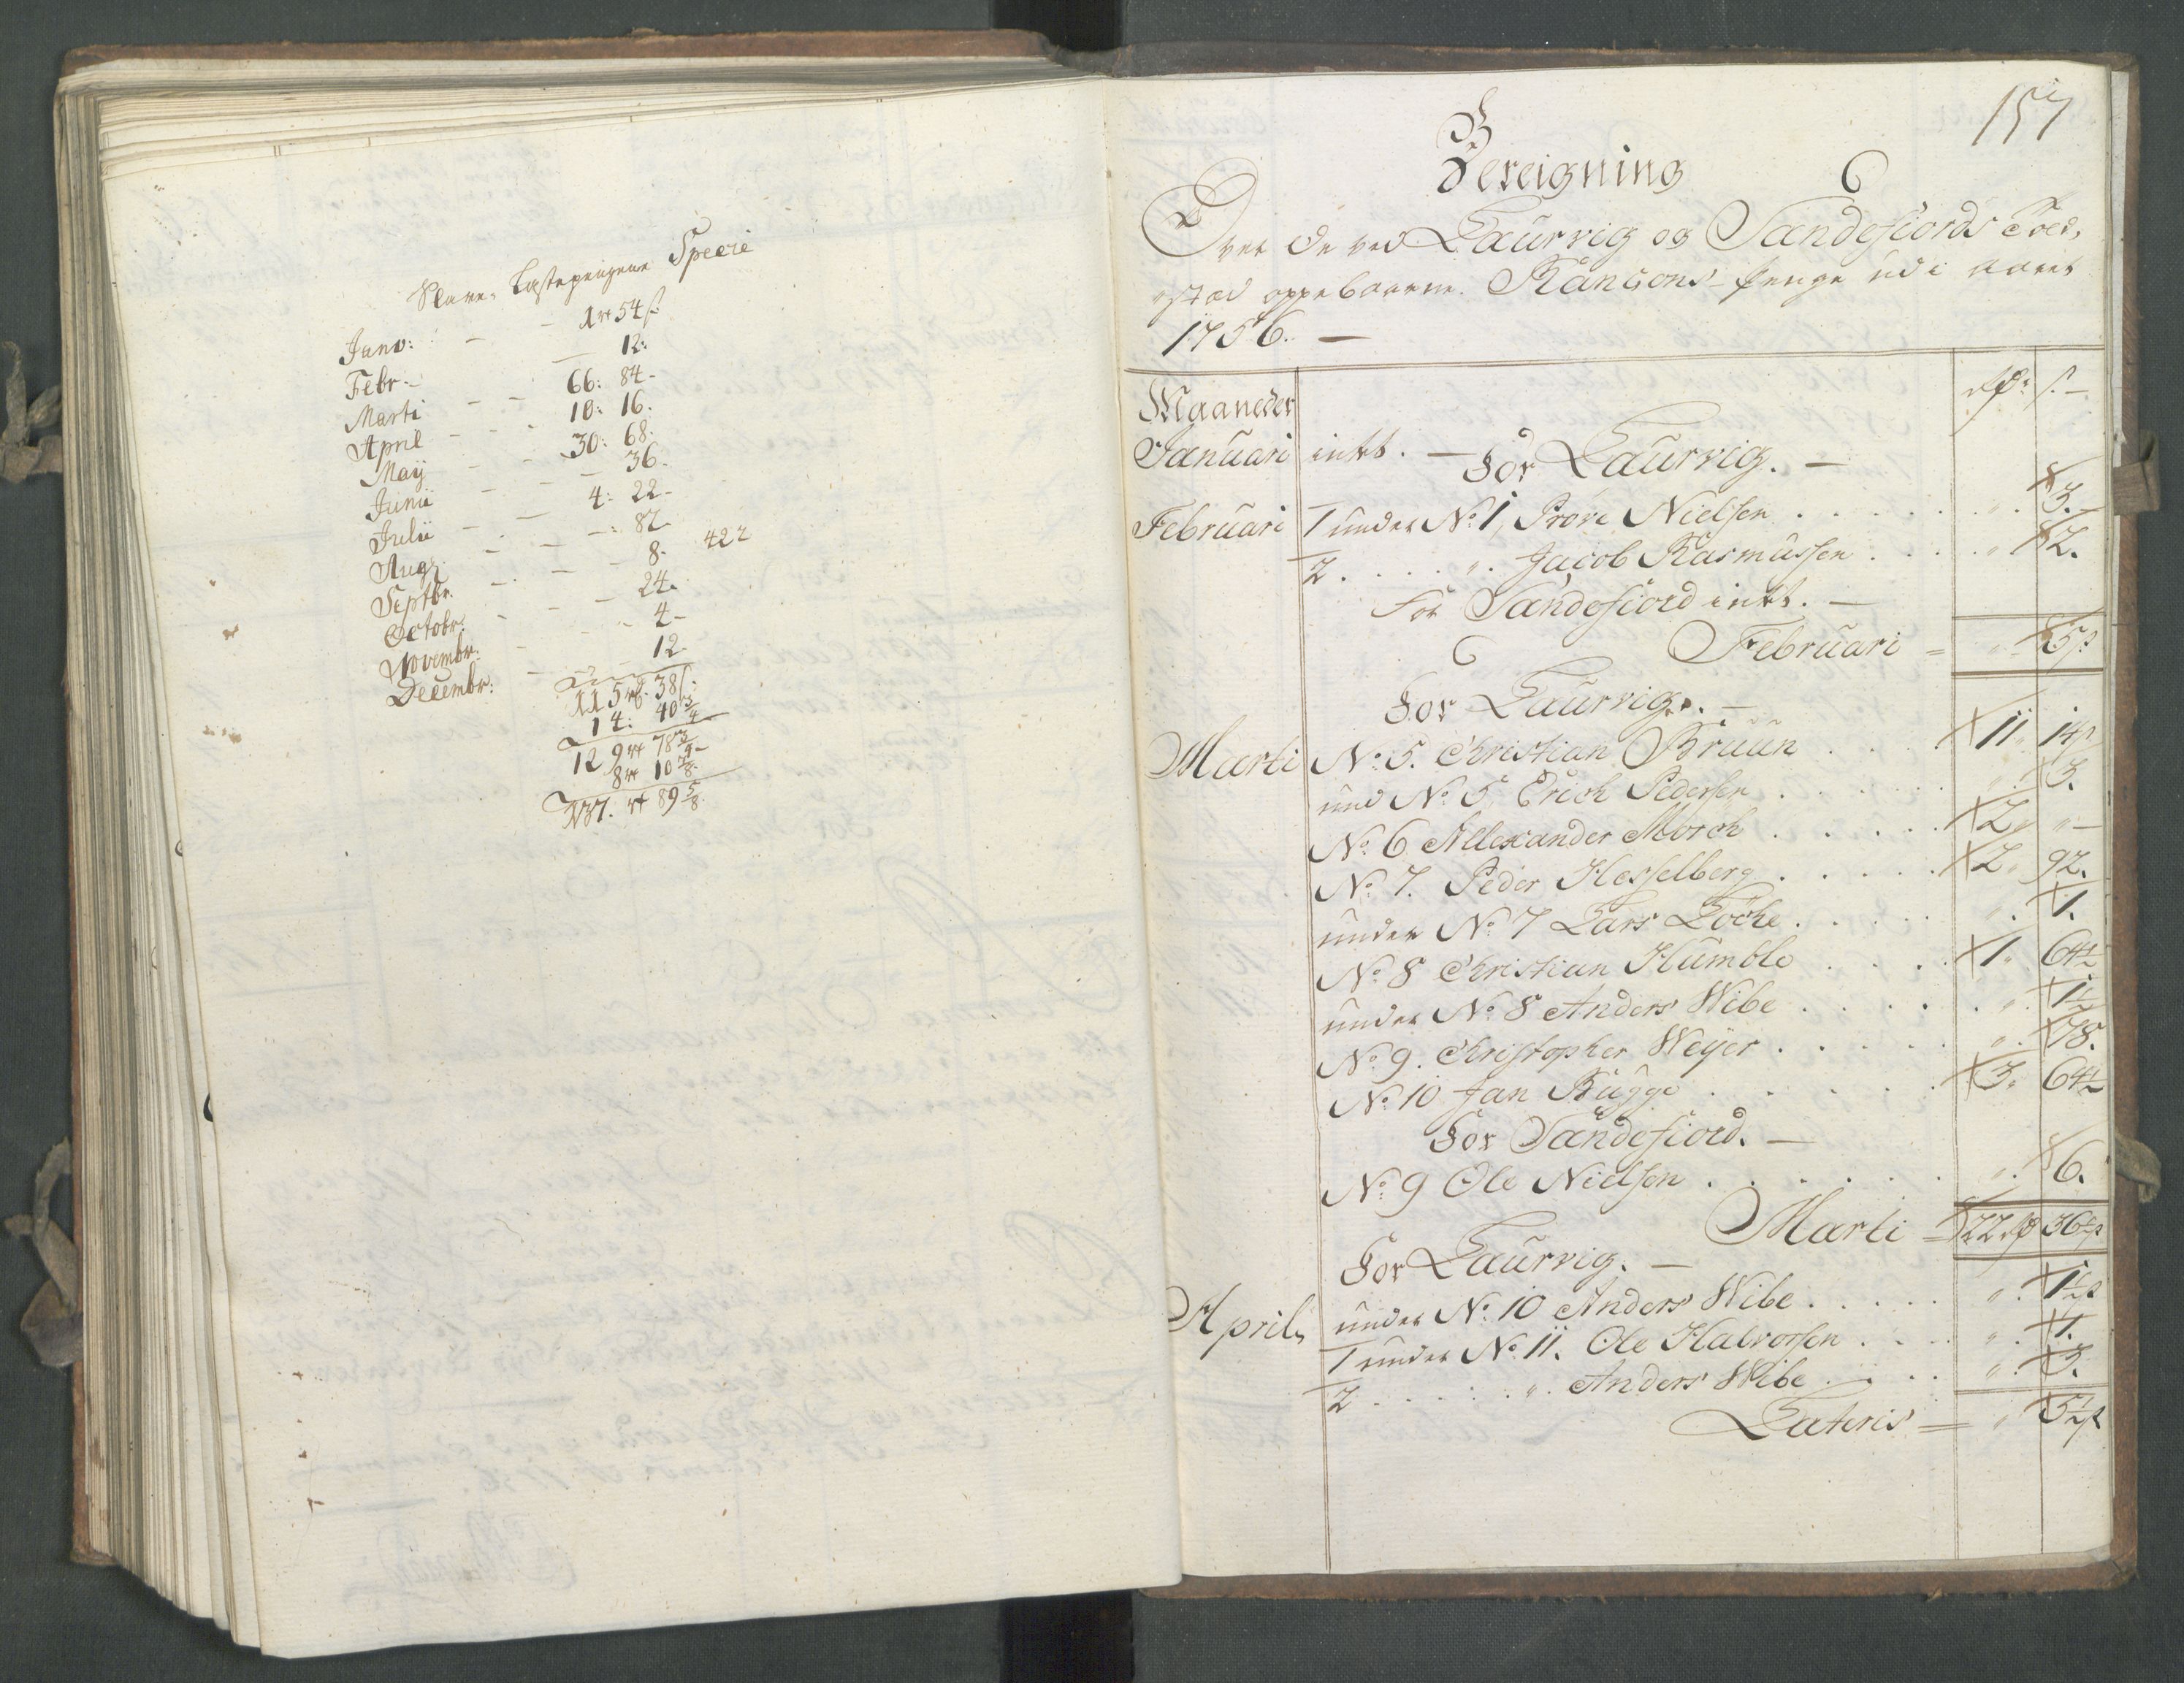 Slave- Lastepengene Specie
Janv: — — 1 rt 54 s
Febr. — 12:
Marti — — 66: 84-
April — — 10: 16.
Maÿ — — 30: 68.
Junii — — 36.
Julii — — 4: 22-
Aug — — -: 82.
Septbr. — — 8. 422
Octobr: — — 24.
Novembr: — 4-
Decembr: — 12-
115 rt. 38 s.
14: 40 3/4
129 rt 78 3/4-
8 rt 10 7/8.
137. rt 89 5/8.
157
Bereigning
Over de ved Laurvig og Sandefiords Told-
sted oppebaarne Rançons-Penge udi aaret
1756. —
Maaneder
Januari intet. —
For Laurvig. —
Februari 1 under No. 1, Prove Nielsen . . . . . . . 3.
2. . . . . ". Jacob Rasmussen . . . . " 2.
For Sandefiord intet. —
Februari = " 5 s
For Laurvig. —
Marti No. 5. Christian Bruun . . . 11. 14 s
und No 5 Erich Pedersen . . . . . . " 3.
No. 6 Allexander Morch . . . . . 2 " —
No. 7. Peder Hesselberg . . . . . 2. 92.
under No. 7 Lars Löche . . . . . ". 1.
No. 8 Christian Humble . . . . 1. 64 1/2
under No. 8 Anders Wibe . . . . . ". 1 1/2
No. 9. Christopher Weÿer . . . . . ". 78.
No. 10 Jan Bugge . . . . . 3. 64 1/2
For Sandefiord. —
No. 9 Ole Nielsen . . . . . . ". 6.
Marti = 22 36 1/2 s
For Laurvig. —
April, under No. 10 Anders Wibe . . . . . ". 1 1/2 s
1 under No. 11. Ole Halvorsen . . . . ". 1.
2 . . . . . ". Anders Wibe . . . . ". 3.
Lateris = " 5 1/2 s